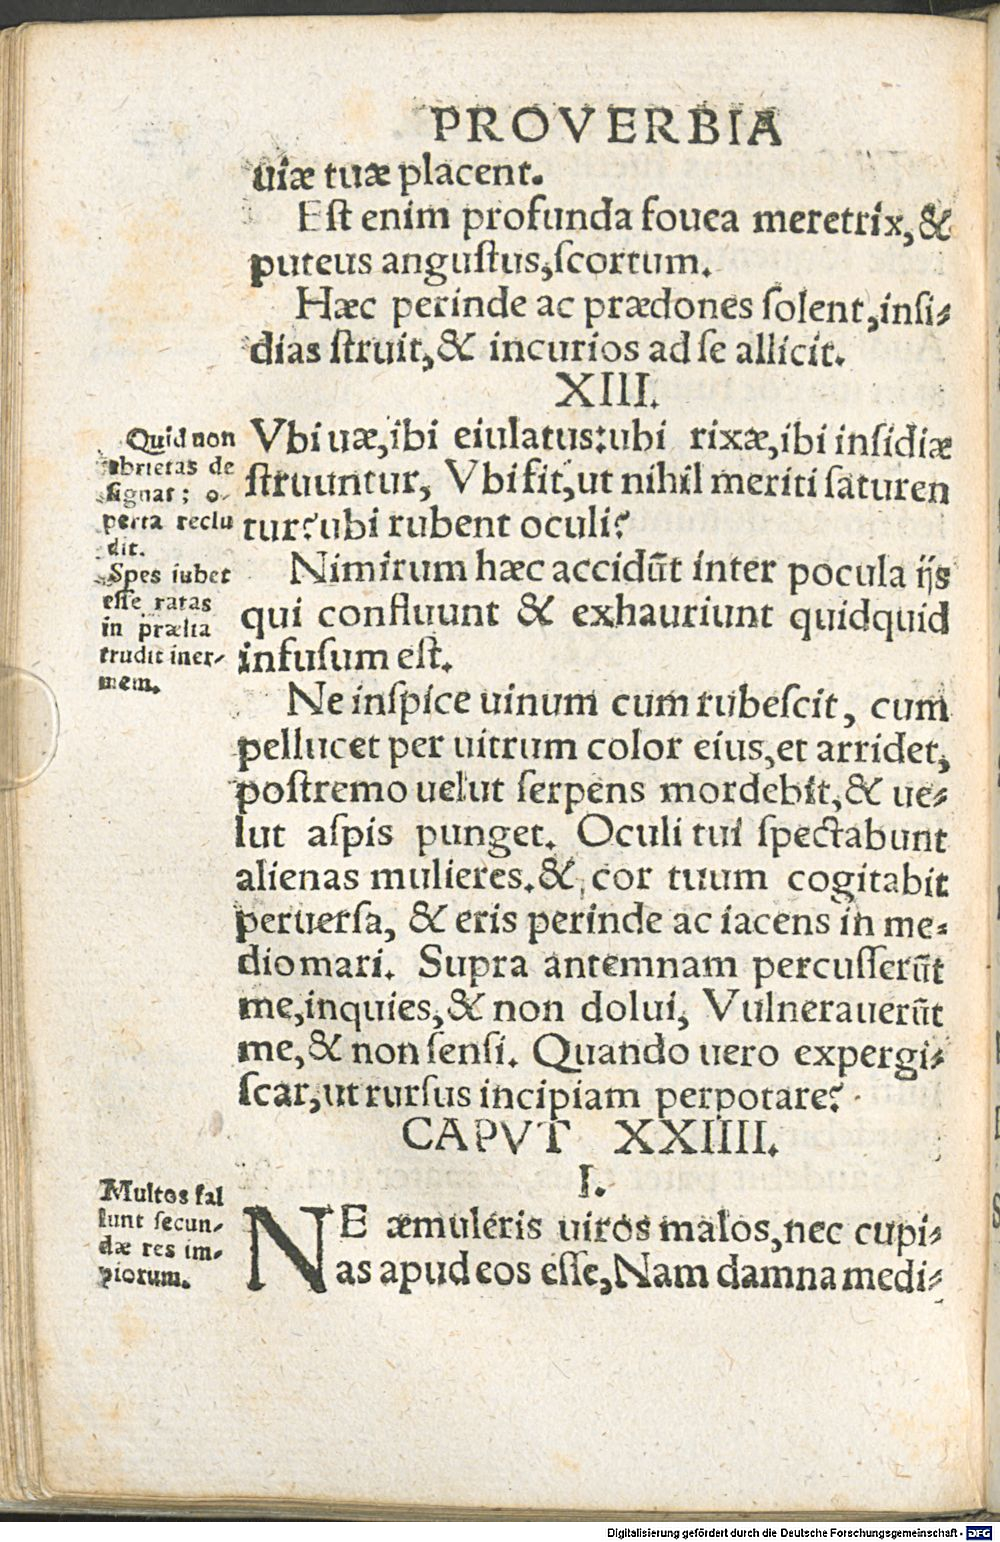 PROVERBIA
uiæ tuæ placent.
Est enim profunda fouea meretrix, &
puteus angustus, scortum.
Hæc perinde ac prædones solent, insi-
dias struit, & incurios ad se allicit.
XIII.
Vbi uæ, ibi eiulatus: ubi rixæ, ibi insidiæ
struuntur, Vbi fit, ut nihil meriti saturen
tur? ubi rubent oculi?
Nimirum hæc accidūt inter pocula ijs
qui confluunt & exhauriunt quidquid
infusum est.
Ne inspice uinum cum rubescit, cum
pellucet per uitrum color eius, et arridet,
postremo uelut serpens mordebit, & ue-
lut aspis punget. Oculi tui spectabunt
alienas mulieres. & cor tuum cogitabit
peruersa, & eris perinde ac iacens in me-
dio mari. Supra antemnam percusserūt
me, inquies, & non dolui, Vulnerauerūt
me, & non sensi. Quando uero expergi-
scar, ut rursus incipiam perpotare?
Quid non
ebrietas de
signat; o-
perta reclu
dit.
Spes iubet
esse ratas
in prælia
trudit iner-
mem.
CAPVT XXIIII.
I.
NE æmuleris uiros malos, nec cupi-
as apud eos esse, Nam damna medi-
Multos fal
lunt secun-
dæ res im-
piorum.
Digitalisierung gefördert durch die Deutsche Forschungsgemeinschaft - DFG